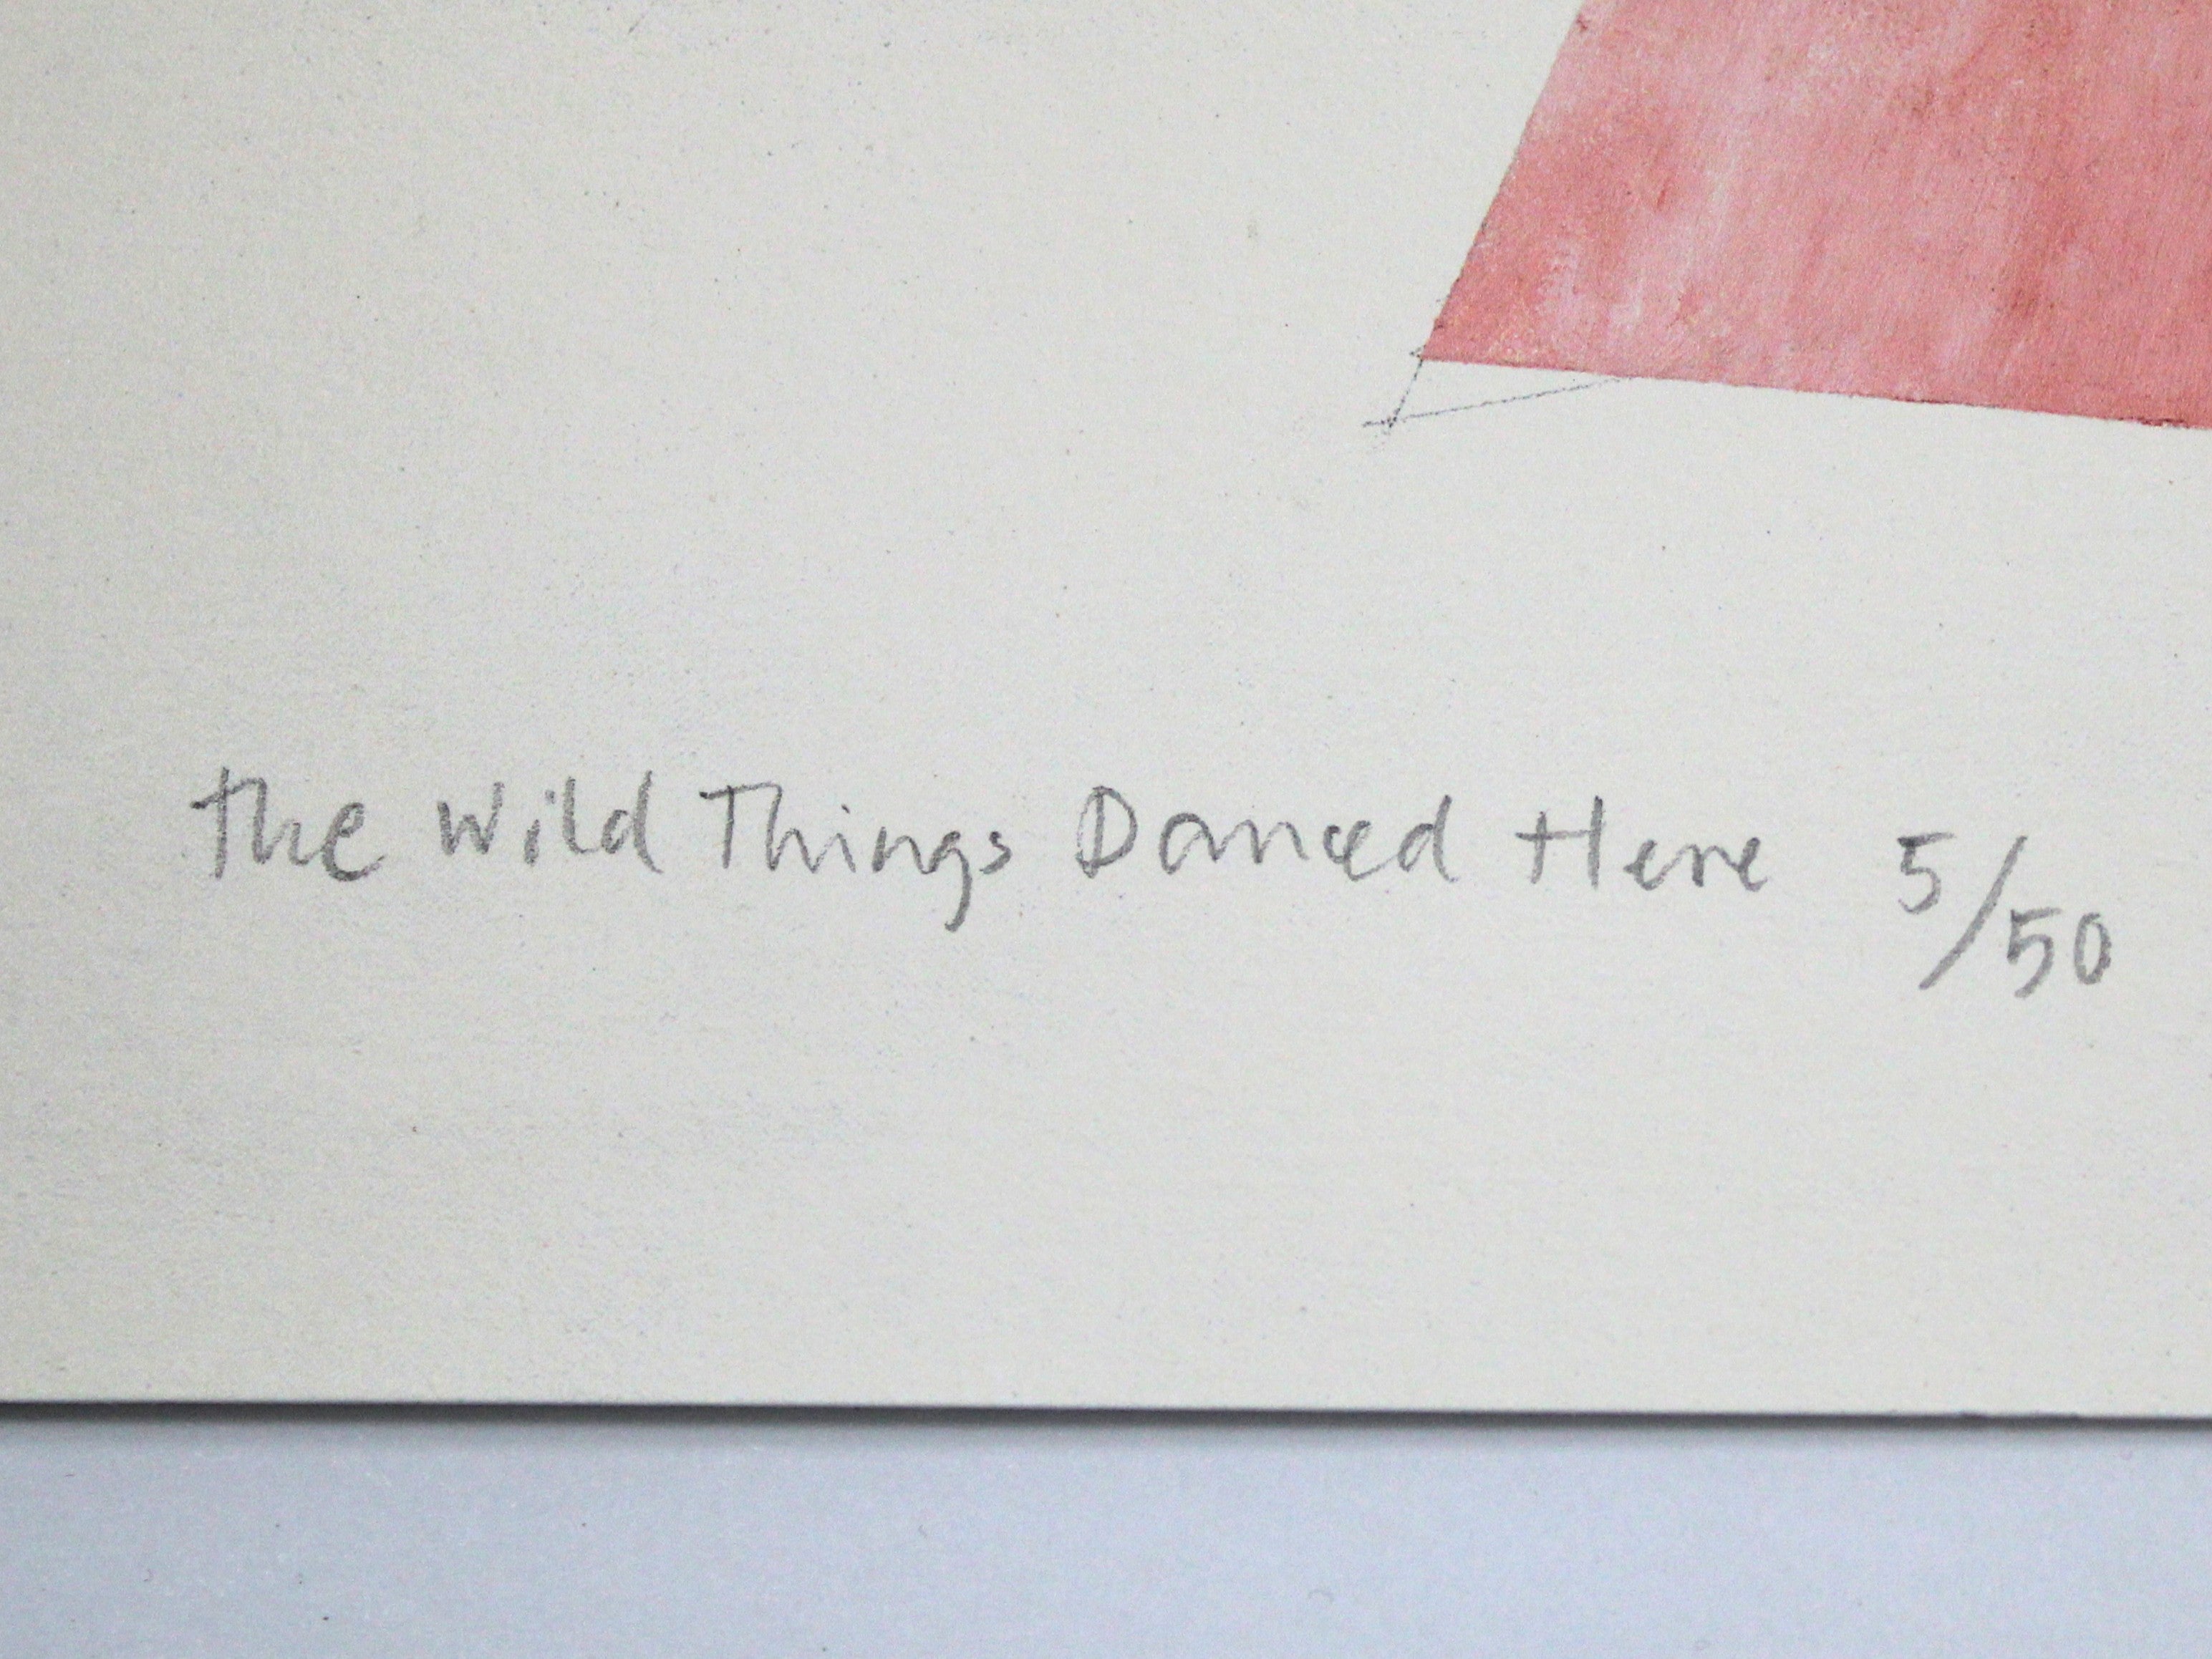 The Wild Things Danced Here 5/50